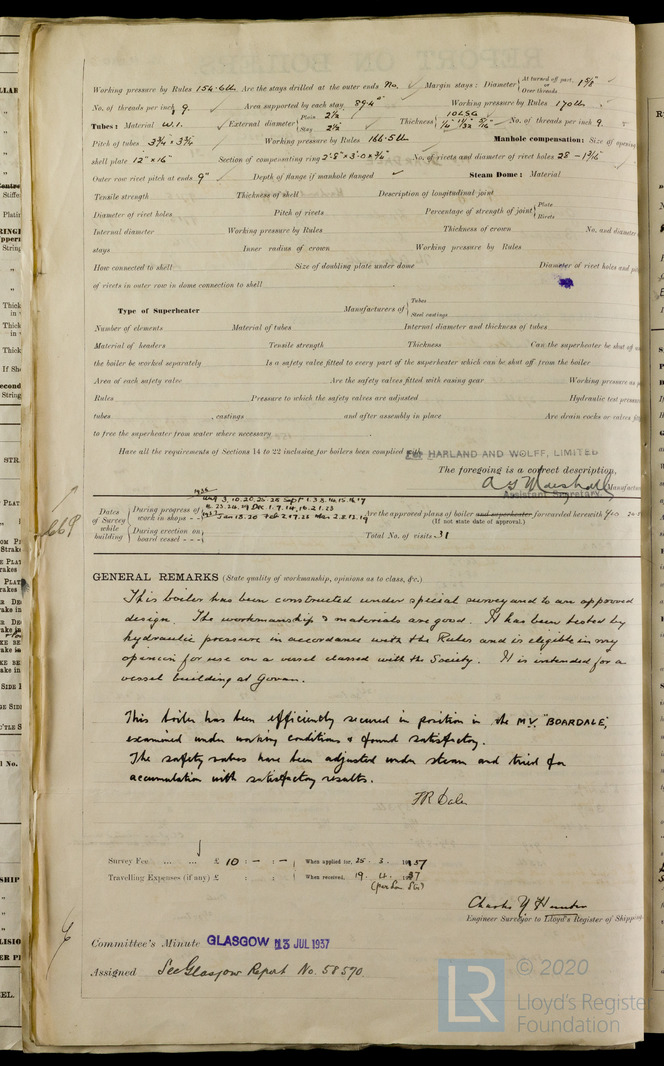 Working pressure by Rules 154.6 lb Are the stays drilled at the outer ends No. Margin stays: Diameter { At turned off part, or Over threads 1 5/8"
No. of threads per inch 9. Area supported by each stay 89.4" Working pressure by Rules 170 lb
Tubes: Material W.I. External diameter { Plain 2 1/2 Stay 2 1/2 Thickness { 10 LSG 1/4" No. of threads per inch 9.
Pitch of tubes 3 3/4 × 3 3/4 Working pressure by Rules 166.5 lb Manhole compensation: Size of opening
shell plate 12" × 16" Section of compensating ring No. of rivets and diameter of rivet holes 28 -
Outer row rivet pitch at ends 9" Depth of flange if manhole flanged Steam Dome: Material
Tensile strength Thickness of shell Description of longitudinal joint
Diameter of rivet holes Pitch of rivets Percentage of strength of joint { Plate Rivets
Internal diameter Working pressure by Rules Thickness of crown No. and diameter
stays Inner radius of crown Working pressure by Rules
How connected to shell Size of doubling plate under dome Diameter of rivet holes and
of rivets in outer row in dome connection to shell
Type of Superheater Manufacturers of { Tubes Steel castings
Number of elements Material of tubes Internal diameter and thickness of tubes
Material of headers Tensile strength Thickness Can the superheater be shut off
the boiler be worked separately Is a safety valve fitted to every part of the superheater which can be shut off from the boiler
Area of each safety valve Are the safety valves fitted with easing gear Working pressure as
Rules Pressure to which the safety valves are adjusted Hydraulic test pressure
tubes , castings and after assembly in place Are drain cocks or valves
to free the superheater from water where necessary
Have all the requirements of Sections 14 to 22 inclusive for boilers been complied For HARLAND AND WOLFF, LIMITED
The foregoing is a correct description,
A S Marshall Manufacturer
Assistant Secretary
Dates of Survey while building
During progress of work in shops - -
During erection on board vessel - - -
1936
Are the approved plans of boiler and superheater forwarded herewith Yes
(If not state date of approval.)
Total No. of visits 31
669
GENERAL REMARKS (State quality of workmanship, opinions as to class, &c.)
This boiler has been constructed under special survey and to an approved
design. The workmanship & materials are good. It has been tested by
hydraulic pressure in accordance with the Rules and is eligible in my
opinion for use on a vessel classed with the Society. It is intended for a
vessel building at Govan.
This boiler has been efficiently secured in position in the M.V. "BOARDALE",
examined under working conditions & found satisfactory.
The safety valves have been adjusted under steam and tried for
accumulation with satisfactory results.
FR Dale
Survey Fee ... ... £ 10 : - : - When applied for, 25 . 3 . 1937
Travelling Expenses (if any) £ : : When received, 19 . 4 . 1937
Charles Y Hunter
Engineer Surveyor to Lloyd's Register of Shipping
Committee's Minute GLASGOW 13 JUL 1937
Assigned See Glasgow Report No. 58570
LR © 2020
Lloyd's Register
Foundation